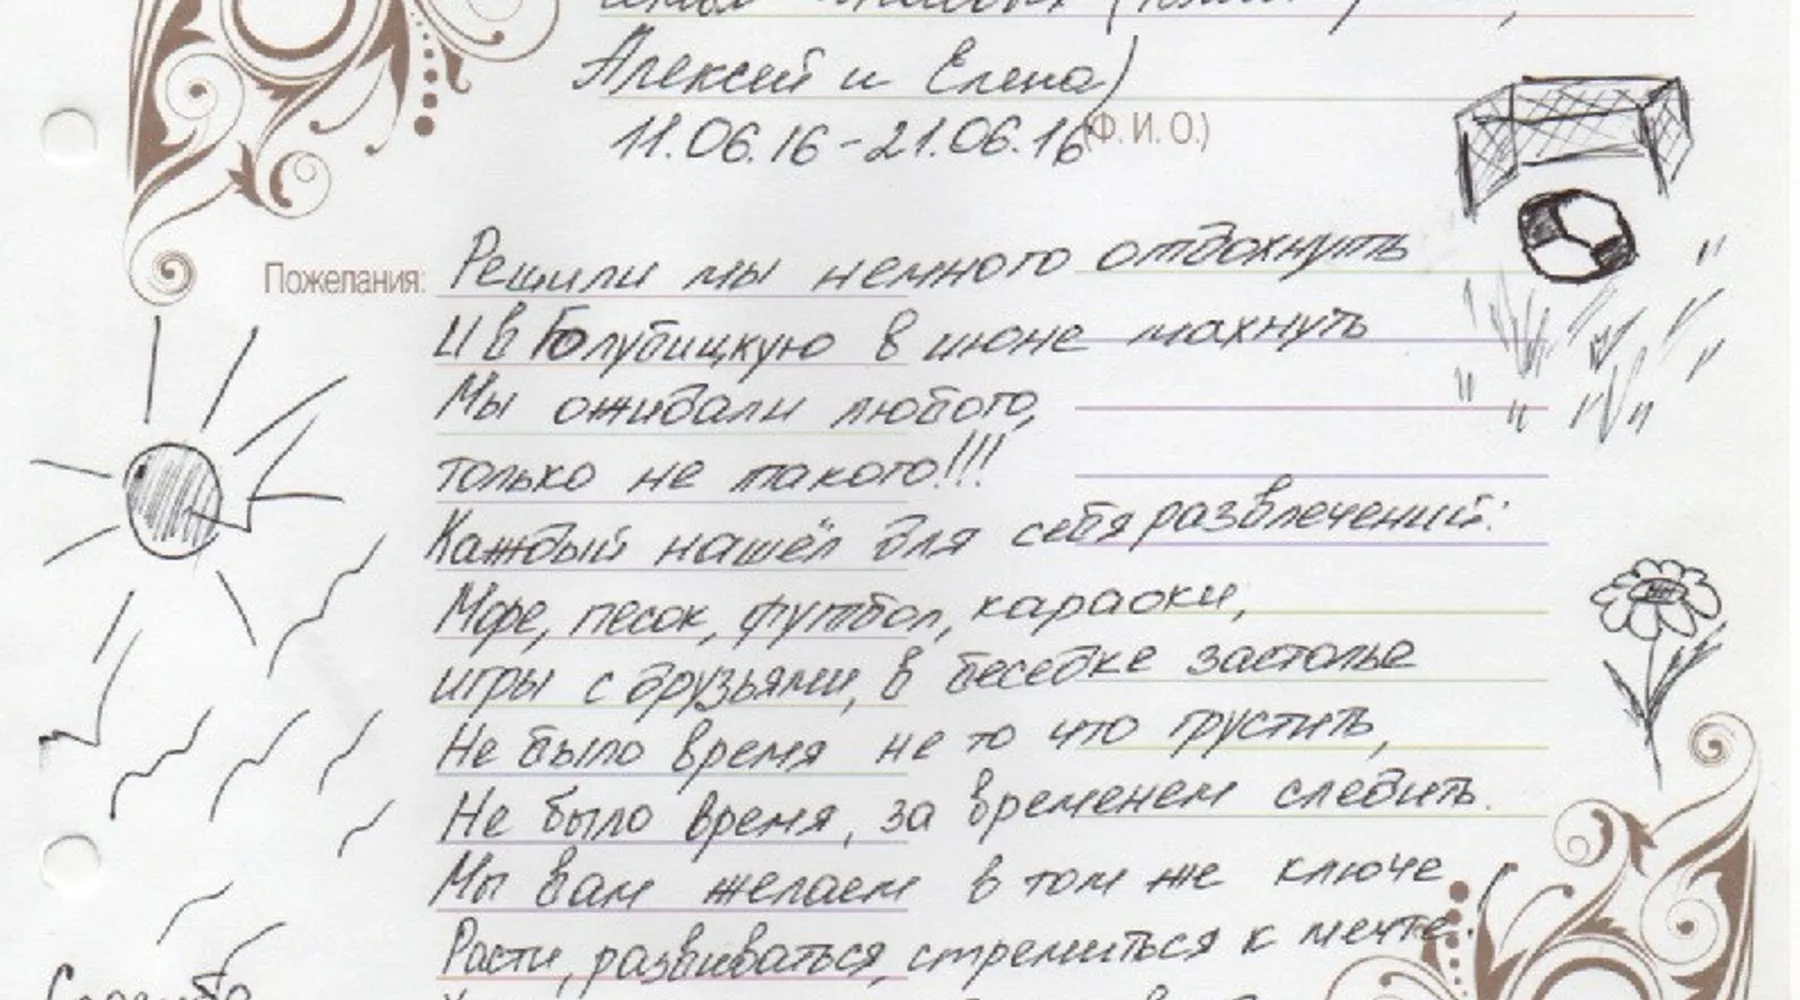 Алексей и Елена)
11.06.16-21.06.16
(Ф.И.О.)
Пожелания: Решили мы немного отдохнуть
И в Голубицкую в июне махнуть
Мы ожидали любого,
только не такого!!!
Каждый нашёл для себя развлечений:
Море, песок, футбол, караоки,
игры с друзьями, в беседке застолье
Не было время не то что грустить,
Не было время, за временем следить.
Мы вам желаем в том же ключе
Расти, развиваться, стремиться к мечте.
Спасибо